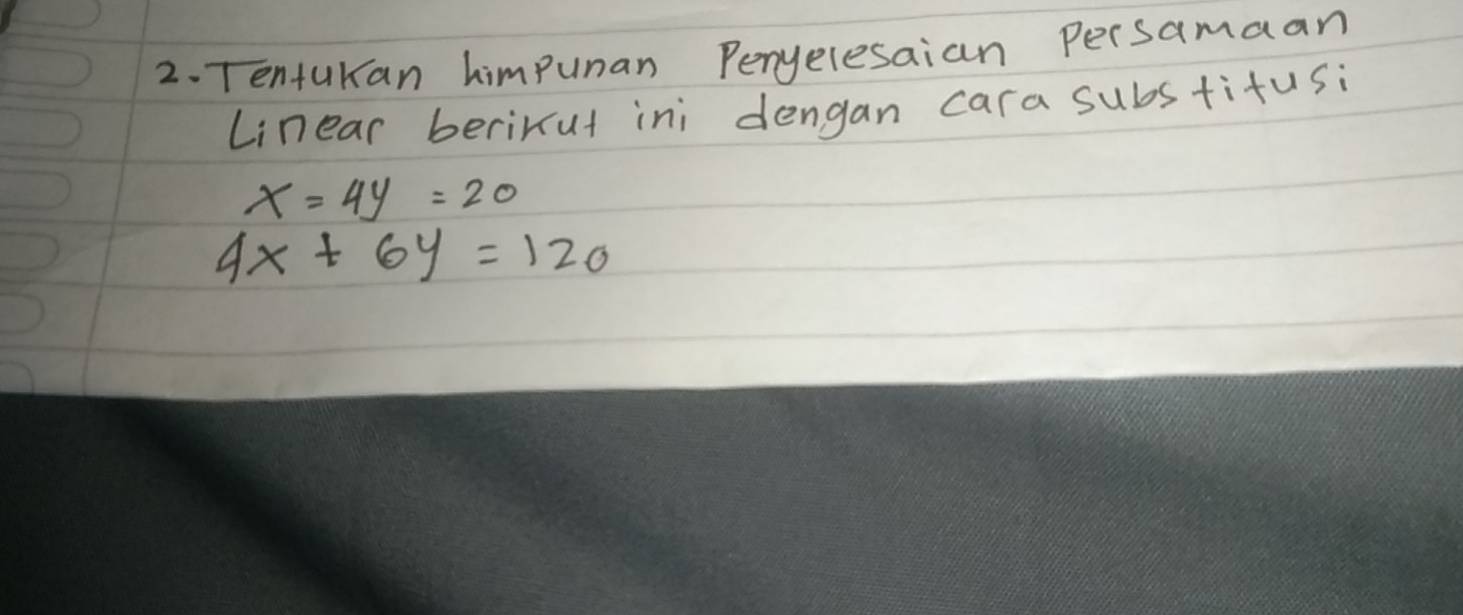 2. Tentukan himpunan Penyelesaian Persamaan
Linear berikut ini dengan cara substitusi
x = 4y = 20
4x + 6y = 120